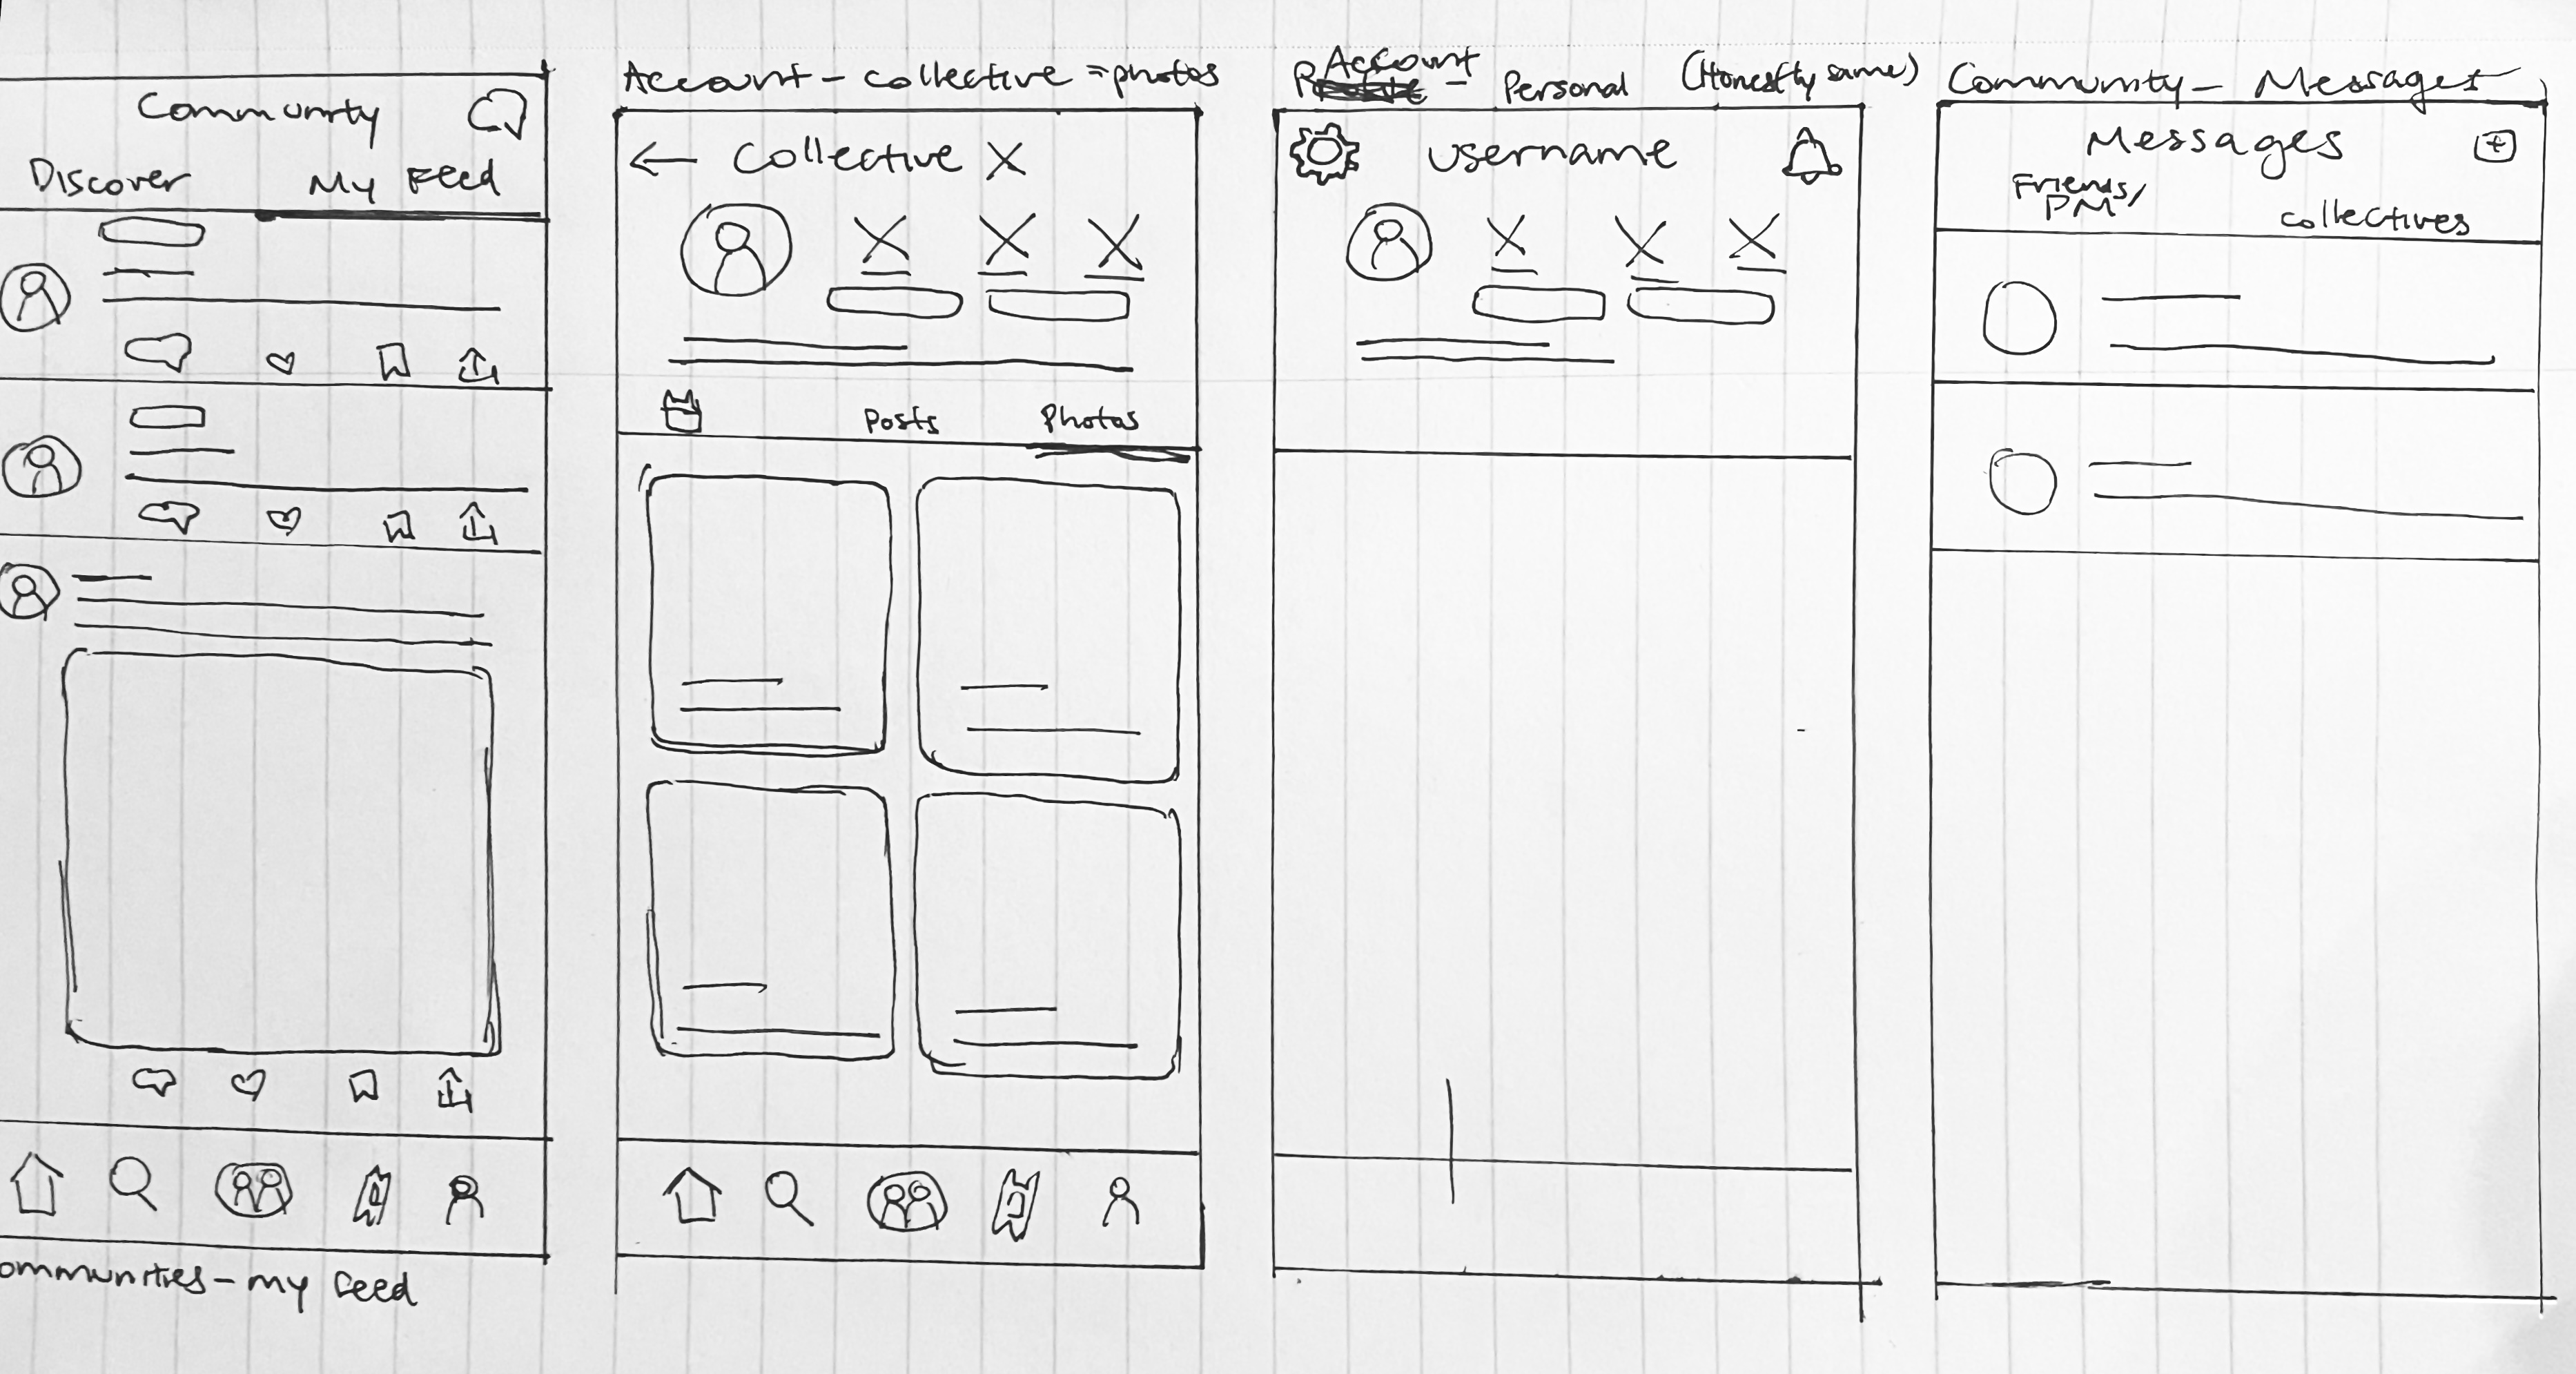 Community
Discover My Feed
ommunities - my feed
Account - collective = photos
← Collective X
X X X
Posts Photos
Account - Personal (Honestly same)
username
X X X
Community - Messages
Messages
Friends/
PM
collectives